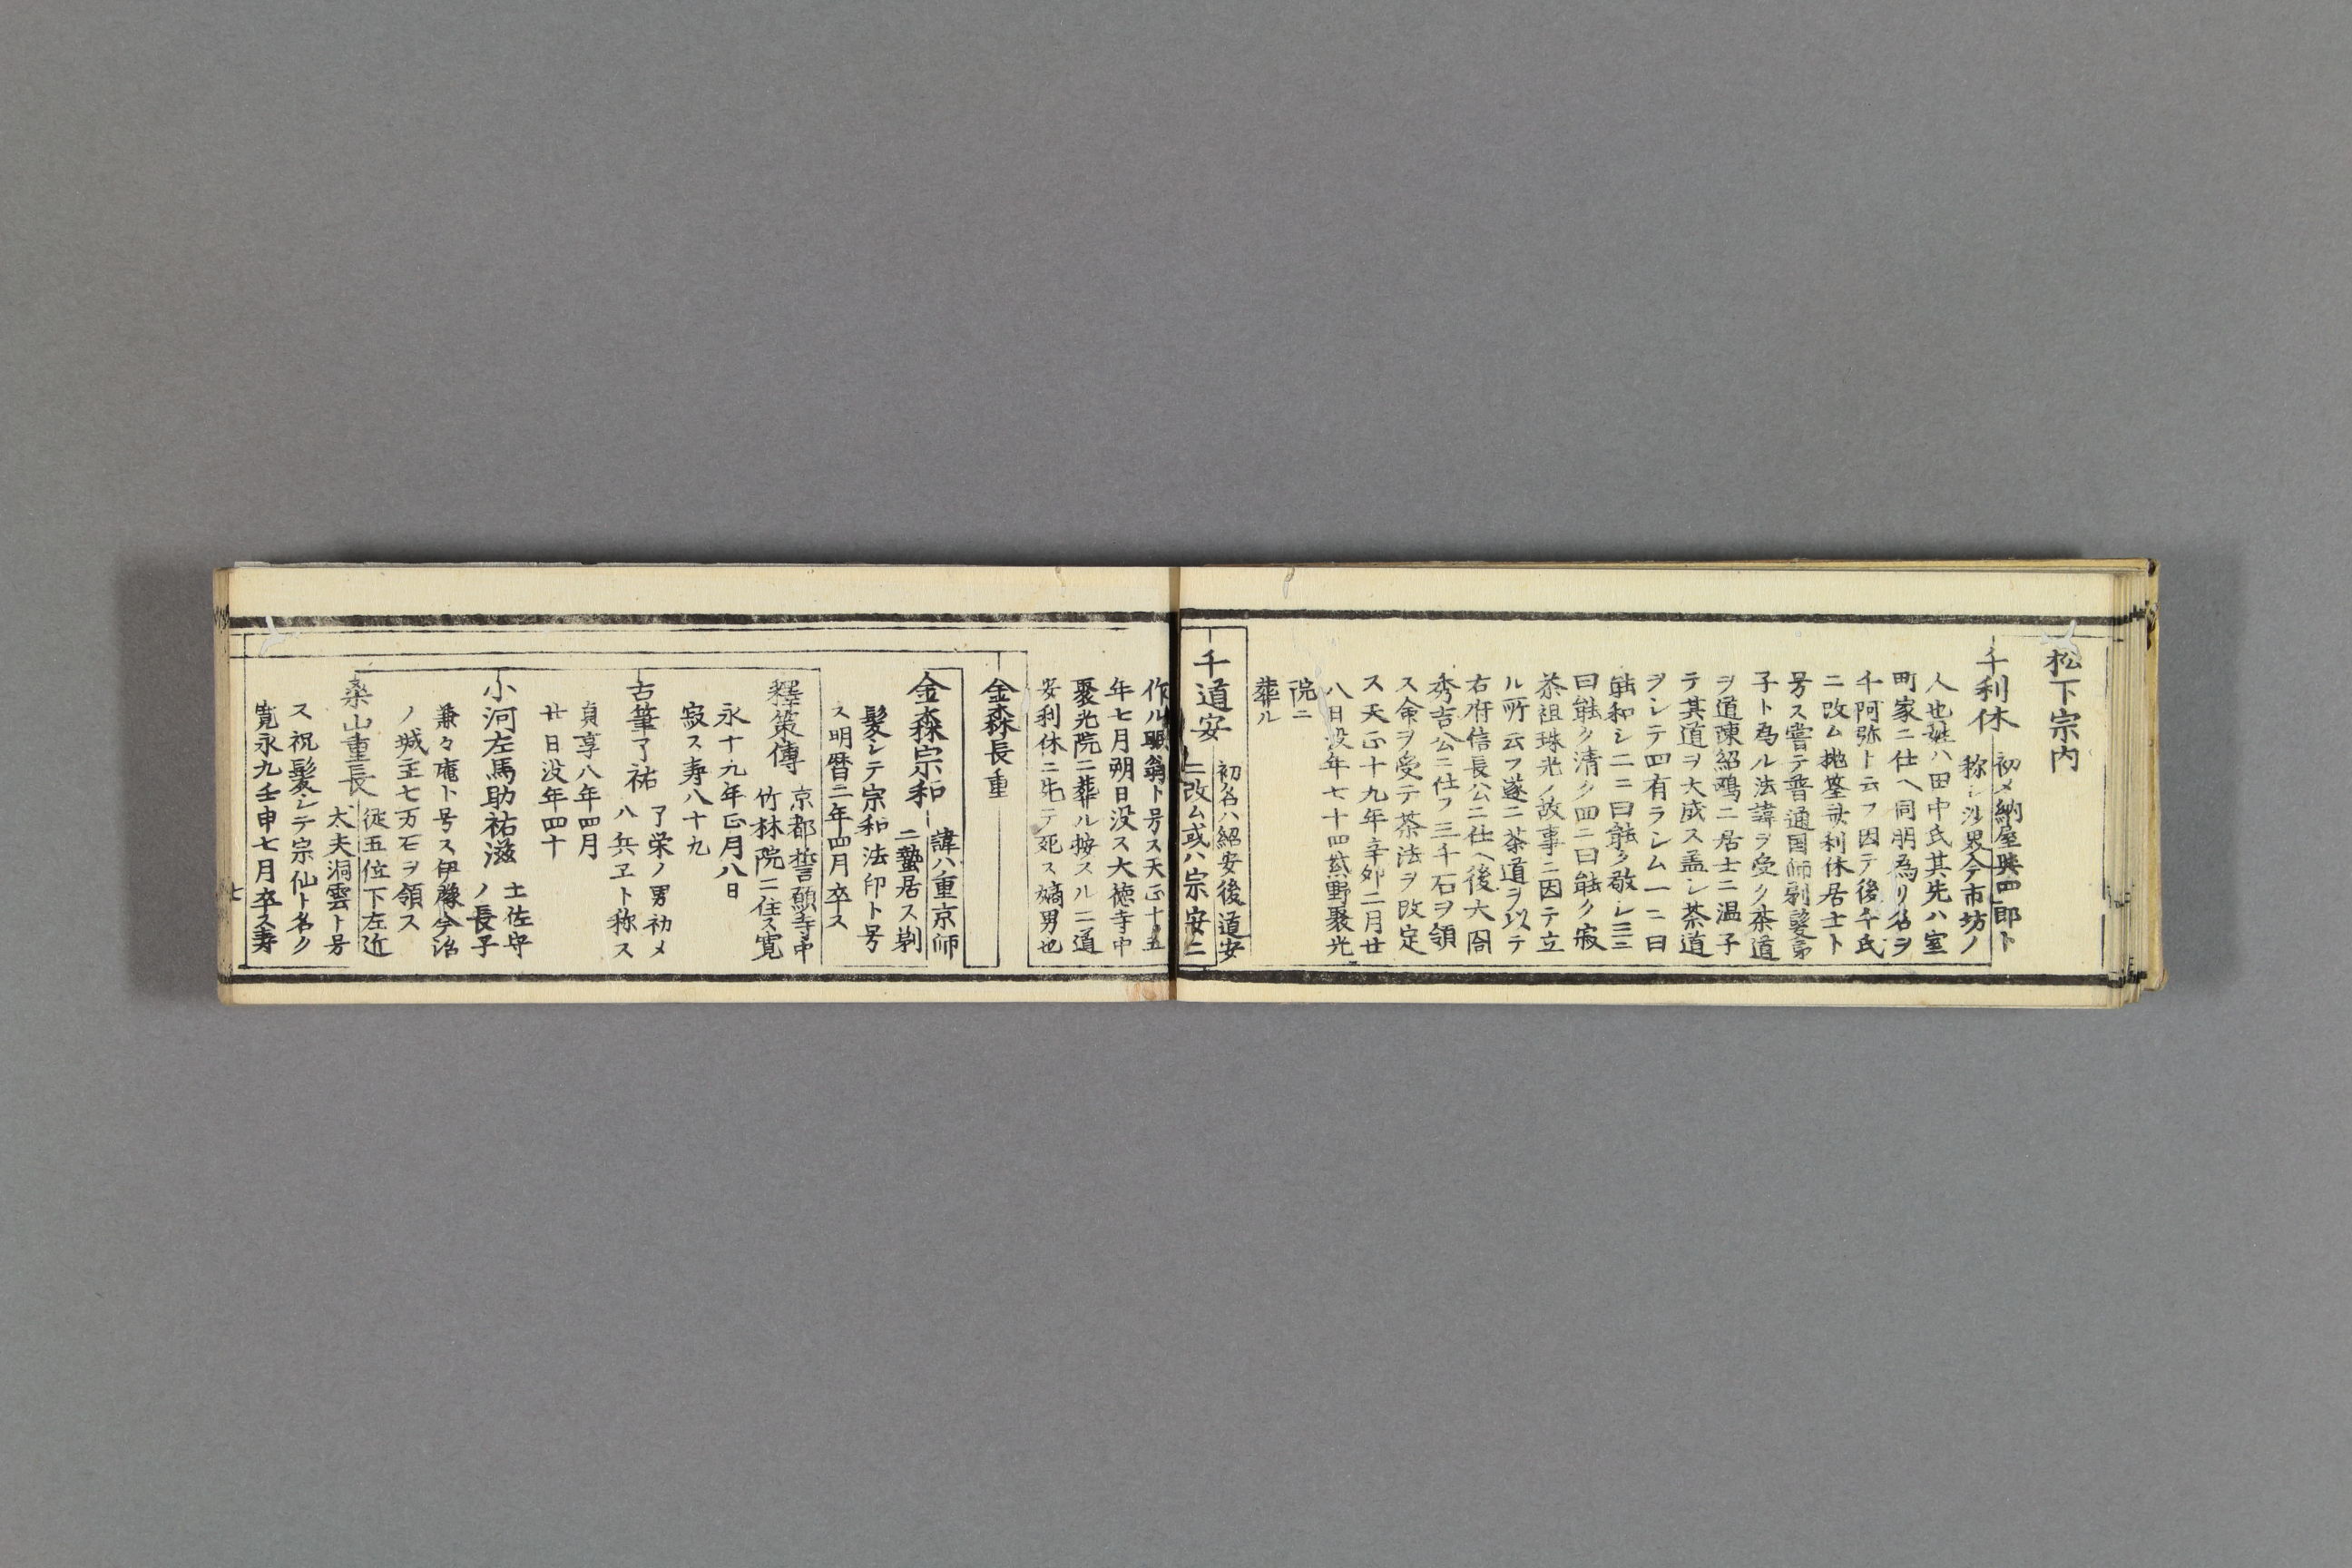 松下宗内
千利休
初メ納屋與四郎ト
称シ沙界今市坊ノ
人也姓ハ田中氏其先ハ室
町家ニ仕ヘ同朋為リ名ヲ
千阿弥ト云フ因テ後千氏
ニ改ム抛筌斎利休居士ト
号ス嘗テ普通国師剃髪弟
子ト為ル法諱ヲ受ク茶道
ヲ道陳紹鴎二居士ニ温子
テ其道ヲ大成ス盖シ茶道
ヲシテ四有ラシム一ニ曰
能和シ二ニ曰能ク敬シ三ニ
曰能ク清ク四ニ曰能ク寂
茶祖珠光ノ故事ニ因テ立
ル所云フ遂ニ茶道ヲ以テ
右府信長公ニ仕ヘ後大閤
秀吉公ニ仕フ三千石ヲ領
ス命ヲ受テ茶法ヲ改定
ス天正十九年辛卯二月廿
八日没年七十四紫野聚光
院ニ
葬ル
千道安
初名ハ紹安後道安
ニ改ム或ハ宗安ニ
作ル眠翁ト号ス天正十五
年七月朔日没ス大徳寺中
聚光院ニ葬ル按スルニ道
安利休ニ先テ死ス嫡男也
金森長重
金森宗和
諱ハ重京師
ニ蟄居ス剃
髪シテ宗和法印ト号
ス明暦二年四月卒ス
釋策傳
京都誓願寺中
竹林院ニ住ス寛
永十九年正月八日
寂ス寿八十九
古筆了祐
了栄ノ男初メ
八兵ヱト称ス
貞享八年四月
廿日没年四十
小河左馬助祐滋
土佐守
ノ長子
兼々庵ト号ス伊豫今治
ノ城主七万石ヲ領ス
桒山重長
従五位下左近
大夫洞雲ト号
ス祝髪シテ宗仙ト名ク
寛永九壬申七月卒ス寿
七